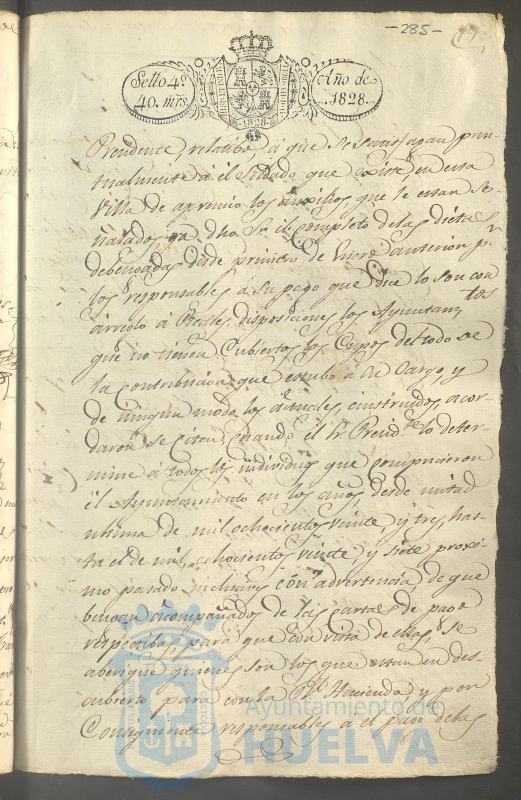 -285-
Sello 4º
40. mrs
Año de
1828.
Prendente, relatibo, á que se satisfagan pun-
tualmente á el Soldado que existe en esta
Villa de apremio los auxilios que le estan se-
ñalados, ya dho Sr. el completo de las dietas
debengadas desde primero de Enero anterior pr.
los responsables á su pago que dice lo son con
árreglo á Reales disposiciones los Ayuntamtos
que no tienen Cubiertos los Cupos del todo de
la contribucion que estubo á su Cargo, y
de ningun modo los actuales, instruidos acor
daron se Citen, quando el Sr. Presidte. lo deter-
mine á todos los individuos que compusieron
el Ayuntamiento en los años desde mitad
ultima de mil ochocientos veinte, y tres, has-
ta el de mil, ochocientos veinte y siete proxi-
mo pasado inclusives con advertencia de que
bengan acompañados de las cartas de pago
respectibas, para que con vista de ellas, se
aberigue quienes son los que estan en des-
cubierto para con la Rl. Hacienda y por
Consiguiente responsables á el pago de las
Ayuntamiento de
HUELVA